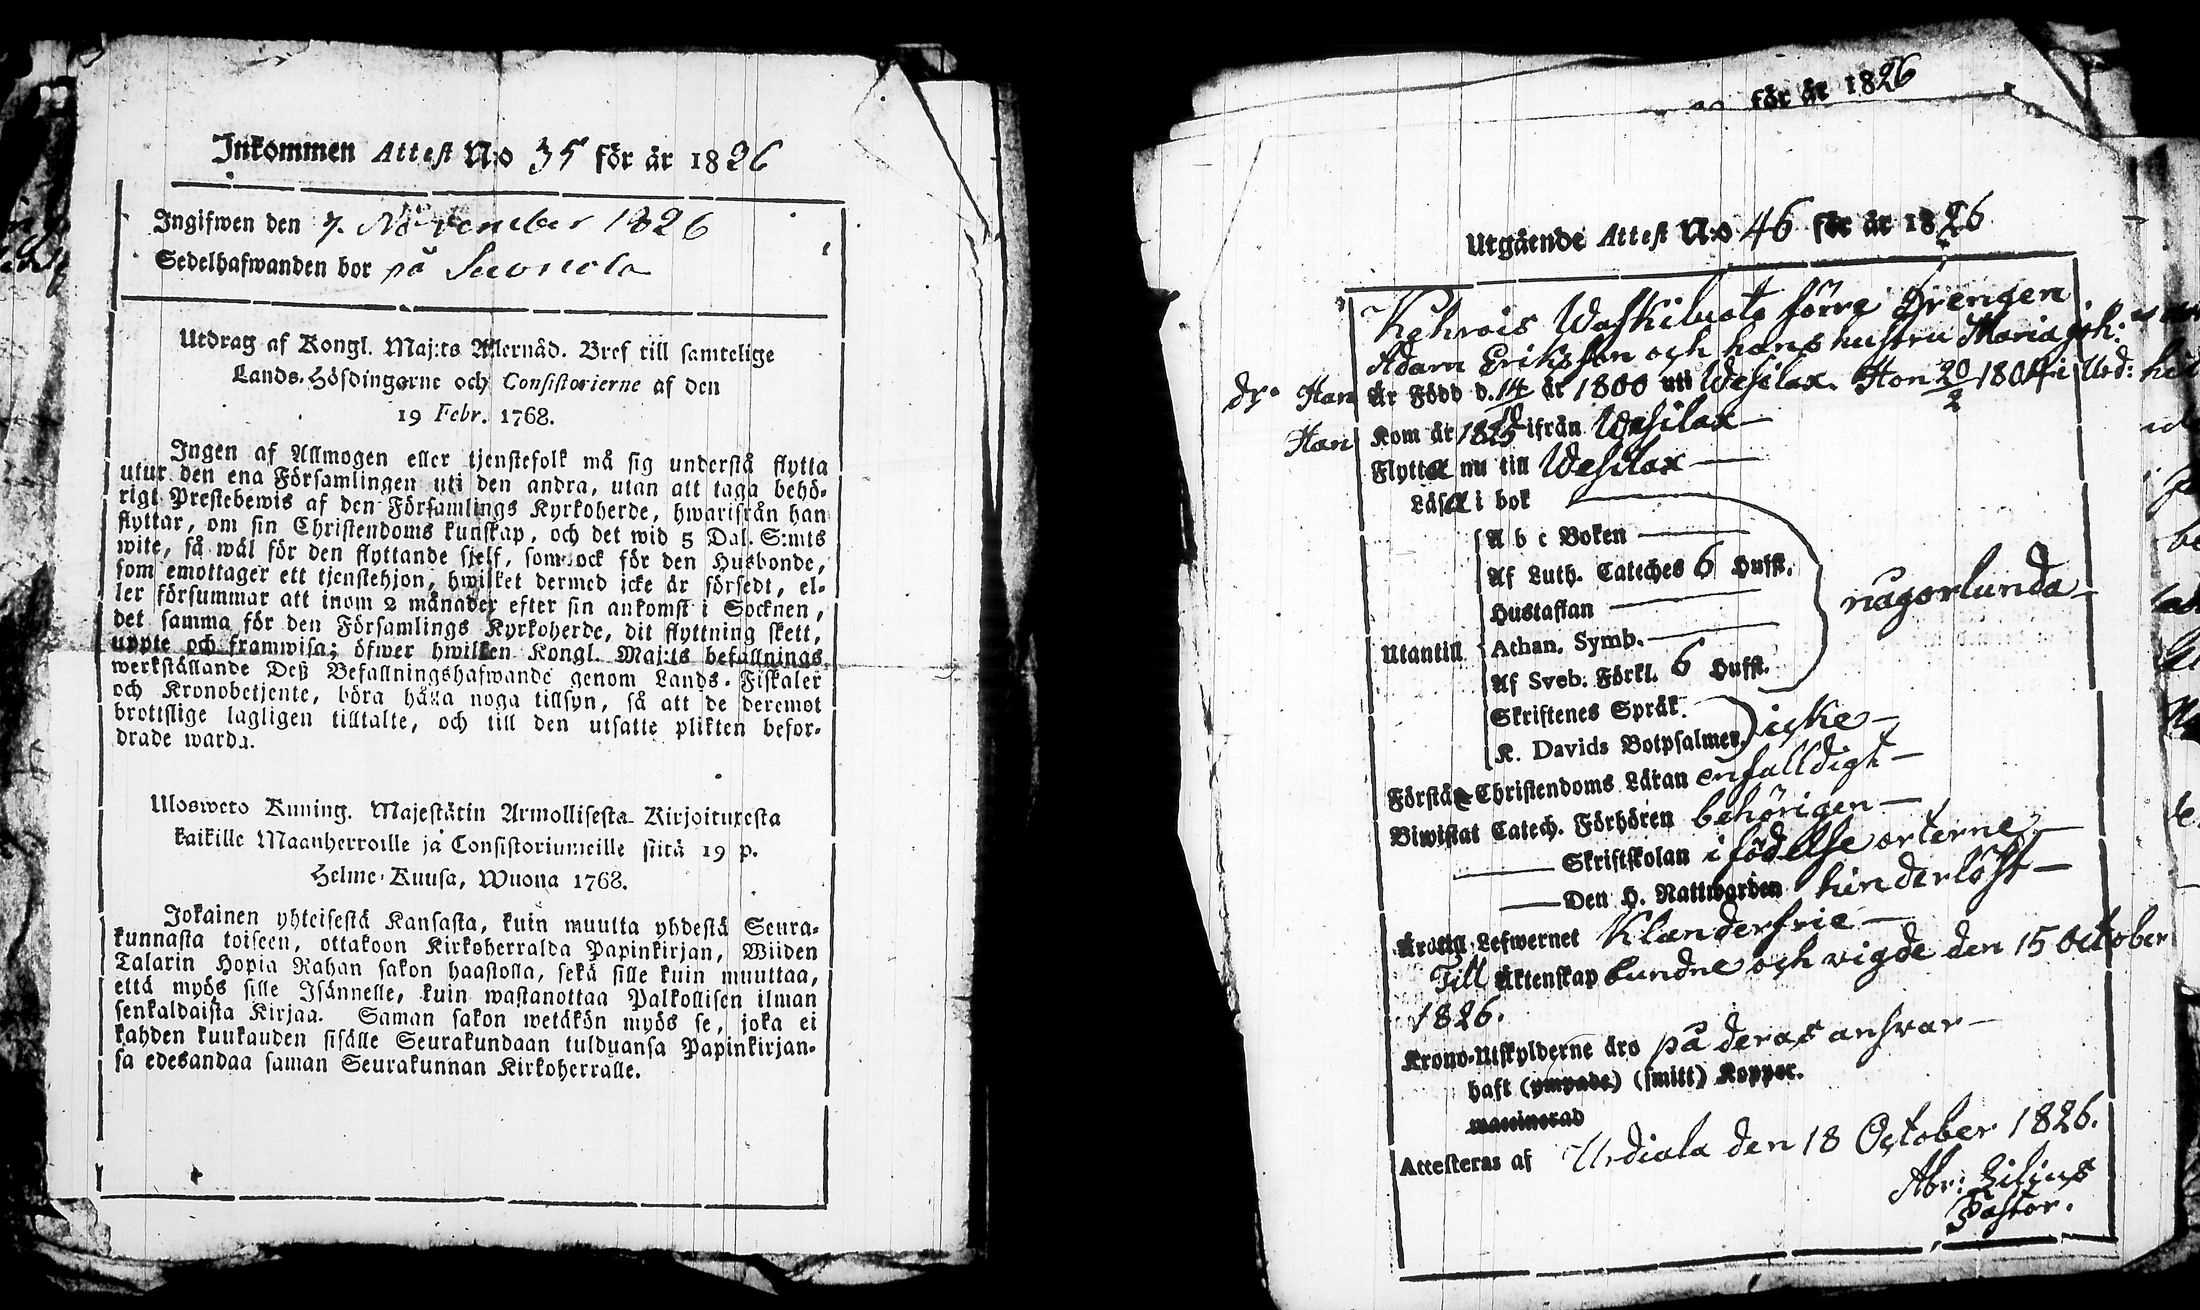 Inkommen Attest N:o 35 för år 1826
Ingifwen den 7. November 1826
Sedelhafwanden bor på Suonola
Utdrag af Kongl. Maj:ts Allernåd. Bref till samtelige
Lands-Höfdingarne och Consistorierne af den
19 Febr. 1768.
Ingen af Allmogen eller tjenstefolk må sig understå flytta
utur den ena Församlingen uti den andra, utan att taga behö-
rigt Prestebewis af den Församlings Kyrkoherde, hwarifrån han
flyttar, om sin Christendoms kunskap, och det wid 5 Dal. S:mts
wite, så wäl för den flyttande sjelf, som ock för den Husbonde,
som emottager ett tjenstehjon, hwilket dermed icke är försedt, el-
ler försummar att inom 2 månader efter sin ankomst i Socknen,
det samma för den Församlings Kyrkoherde, dit flyttning skett,
uppte och framwisa; öfwer hwilken Kongl. Maj:ts befallnings
werkställande Deß Befallningshafwande genom Lands-Fiskaler
och Kronobetjente, böra hålla noga tillsyn, så att de deremot
brottslige lagligen tilltalte, och till den utsatte plikten befor-
drade warda.
Ulosweto Kuning. Majestätin Armollisesta Kirjoituxesta
kaikille Maanherroille ja Consistoriumeille siitä 19 p.
Helme-Kuusa, Wuona 1768.
Jokainen yhteisestä Kansasta, kuin muutta yhdestä Seura-
kunnasta toiseen, ottakoon Kirkoherralda Papinkirjan, Wiiden
Talarin Hopia Rahan sakon haastolla, sekä sille kuin muuttaa,
että myös sille Isännelle, kuin wastanottaa Palkollisen ilman
senkaldaista Kirjaa. Saman sakon wetäkön myös se, joka ei
kahden kuukauden sisälle Seurakundaan tulduansa Papinkirjan-
sa edesandaa saman Seurakunnan Kirkoherralle.
för år 1826
Utgående Attest N:o 46 för år 1826
Kehrois Waskiluoto förre Drengen
Adam Eriksson och hans hustru Maria
Han Är Född d. 14 år 1800 uti Wesilax. Hon 20/2 1804 i Urd:
Han Kom år 1825 ifrån Wesilax
Flytta nu till Wesilax
Läsa i bok
A b c Boken
Af Luth. Cateches 6 Hufst.
Hustaflan
någorlunda
Utantill Athan. Symb.
Af Sveb. Förkl. 6 Hufst.
Skriftenes Språk
K. Davids Botpsalmer. icke
Förstå Christendoms Läran enfalldigt
Biwistat Catech. Förhören behörigen
Skriftskolan i födelse orterne
Den H. Nattwarden hinderlöst
Lefwernet Klanderfrie
Till Äktenskap bundne och vigde den 15 October
1826.
Krono-Utskylderne äro på deras ansvar
haft (ympade) (smitt) Koppor.
waccinerad
Attesteras af Urdiala den 18 October 1826.
Abr: Zilius
Pastor.